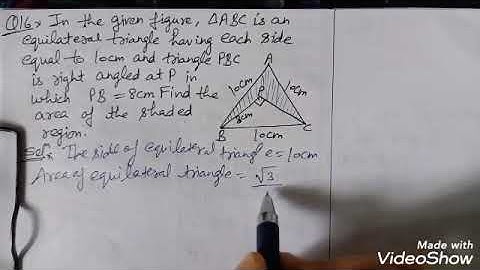 Q16> In the given figure, ΔABC is an
equilateral triangle having each side
equal to 10cm and triangle PBC
is right angled at P in
which PB = 8cm Find the
area of the shaded
region.
A
10cm
10cm
P
8cm
B
10cm
C
Sol: The side of equilateral triangle = 10cm
Area of equilateral triangle = √3
Made with
VideoShow